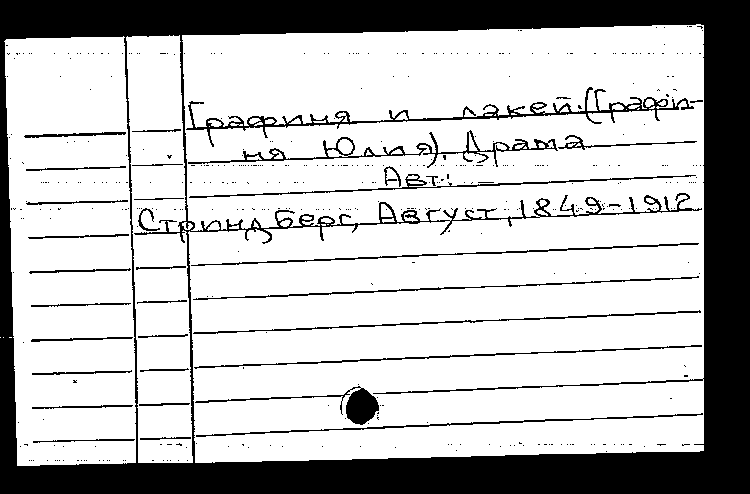 Графиня и лакей.(Графи-
ня Юлия). Драма
Авт.:
Стриндберг, Август, 1849-1912